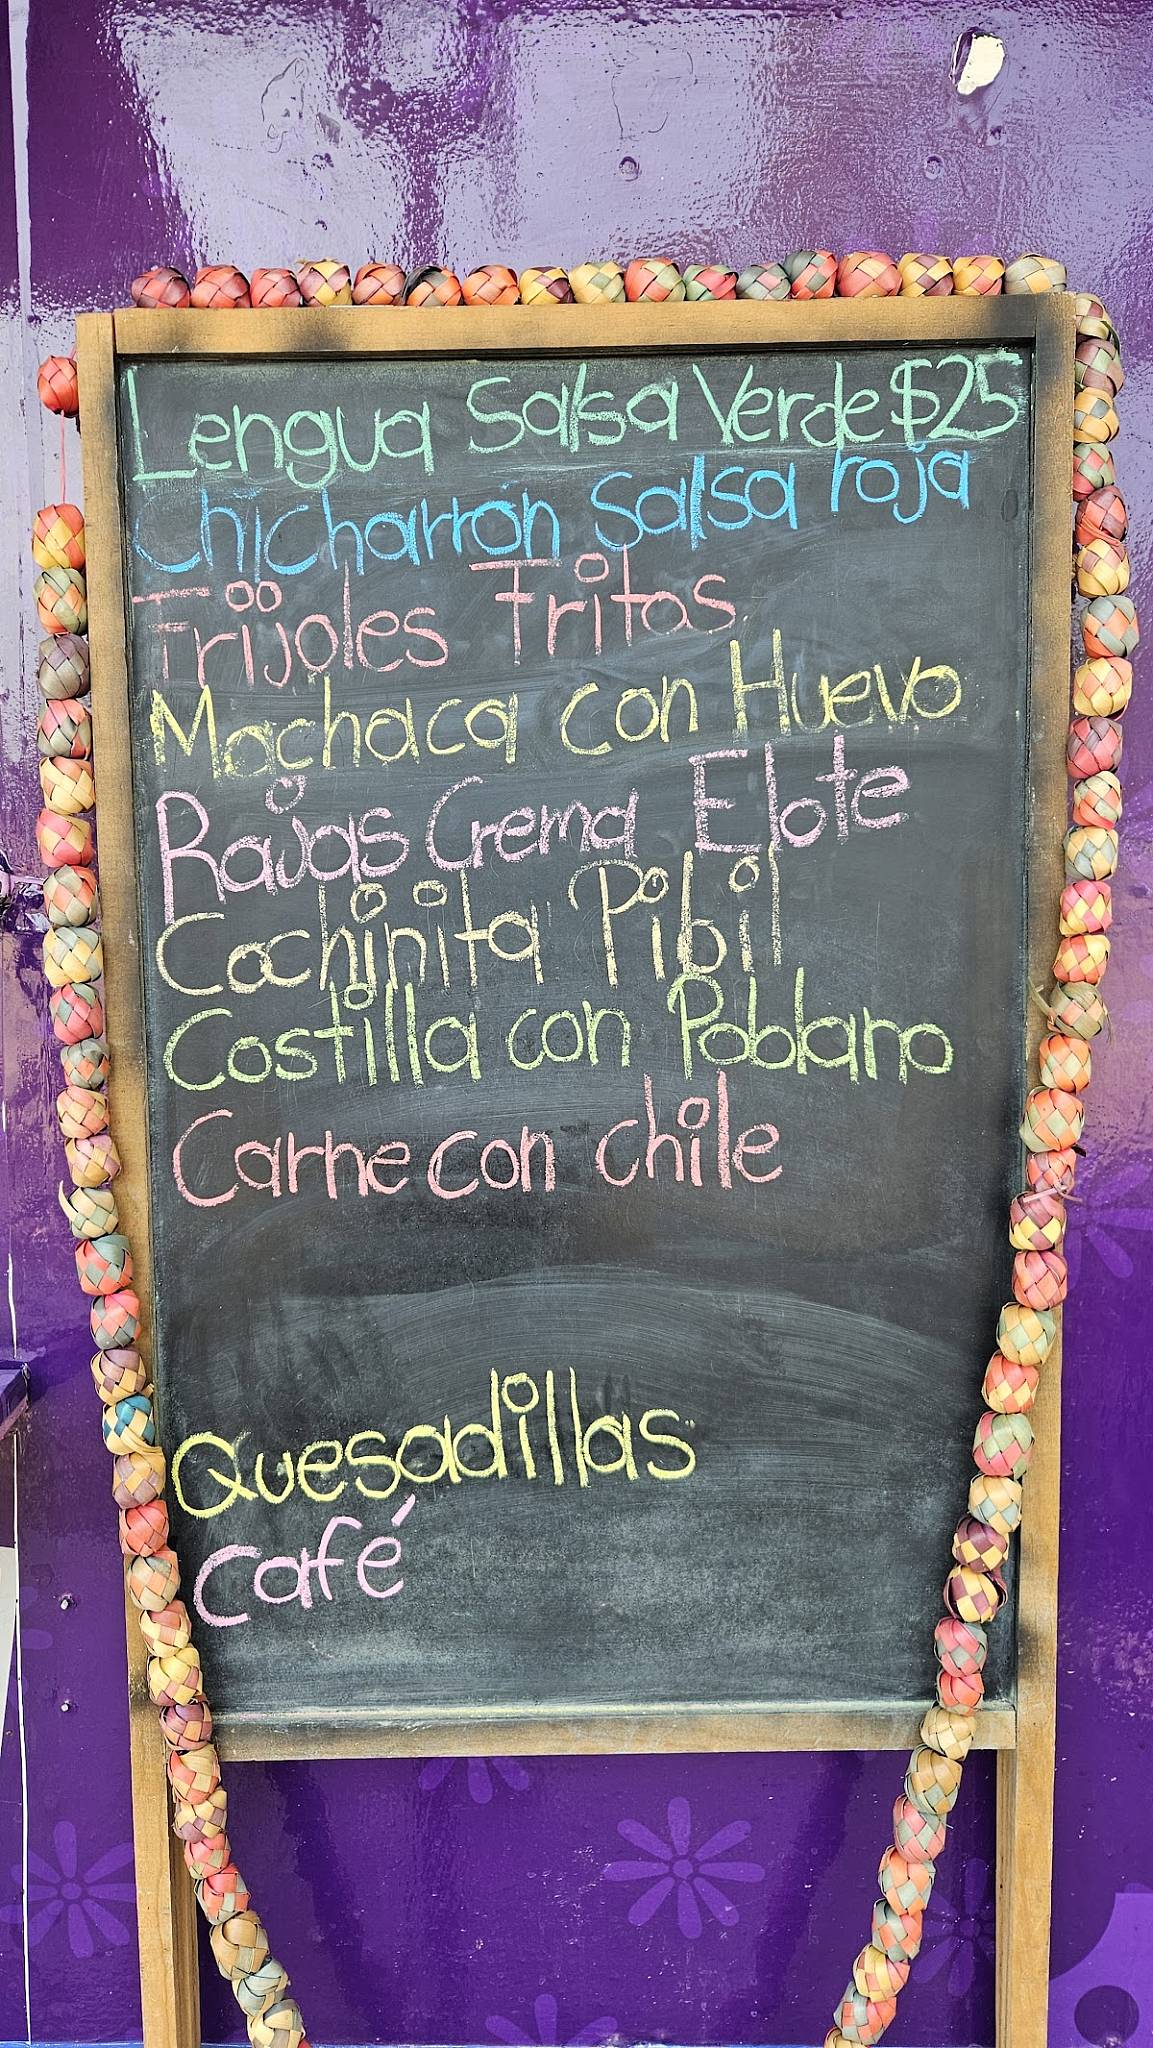 Lengua Salsa Verde $25
Chicharrón Salsa roja
Frijoles Fritos
Machaca con Huevo
Rajas Crema Elote
Cochinita Pibil
Costilla con Poblano
Carne con chile
Quesadillas
café